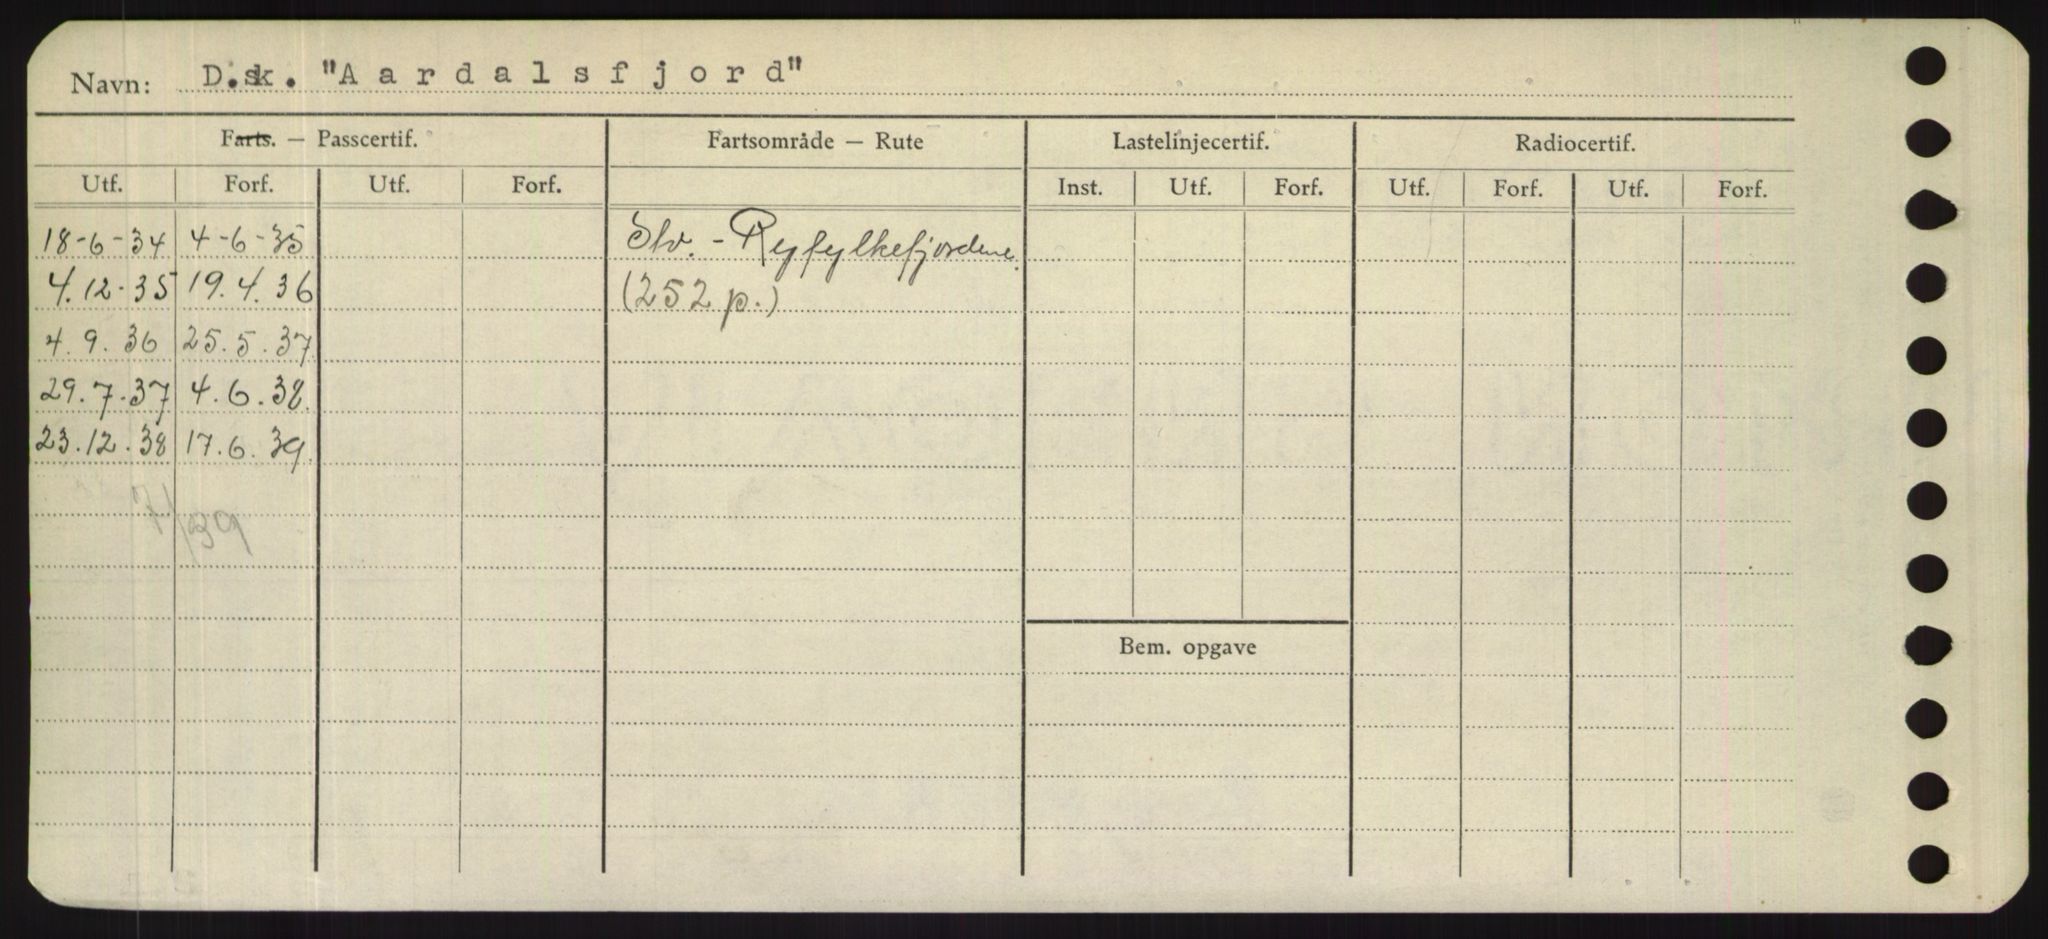 Navn: D.sk. "Aardalsfjord"
Farts. — Passcertif. Fartsområde — Rute Lastelinjecertif. Radiocertif.
Utf. Forf. Utf. Forf. Inst. Utf. Forf. Utf. Forf. Utf. Forf.
18-6-34 4-6-35 Stv. - Ryfylkefjordene.
4.12.35 19.4.36 (252 p.)
4.9.36 25.5.37
29.7.37 4.6.38.
23.12.38 17.6.39.
7/39
Bem. opgave